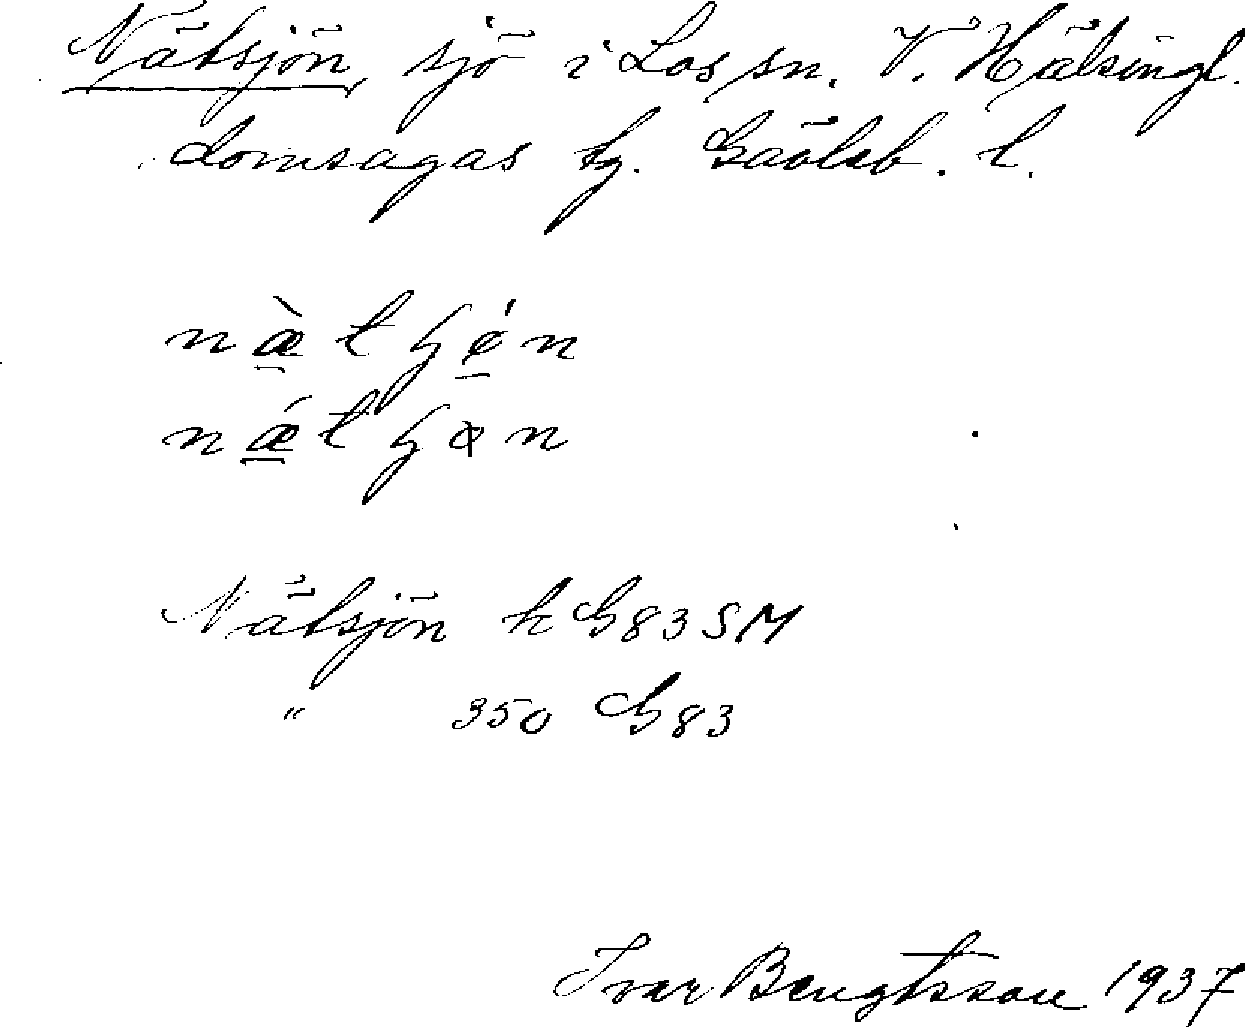 Nätsjön, sjö i Los sn. V. Hälsingl.
domsagas tg. Gävleb. l.
næ̀tʃǿn
nǽtʃøn
Nätsjön k G83SM
" 350 G83
Ivar Bengtsson 1937